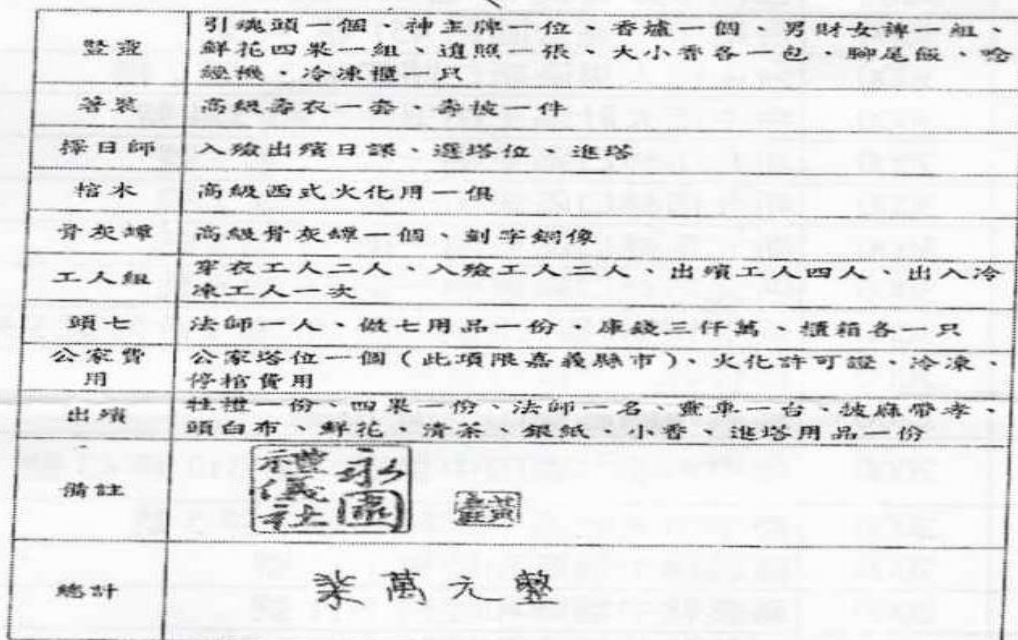 豎靈
引魂頭一個、神主牌一位、香爐一個、男財女婢一組、
鮮花四果一組、遺照一張、大小香各一包、腳尾飯、唸
經機、冷凍櫃一只
著裝
高級壽衣一套、壽被一件
擇日師
入殮出殯日課、選塔位、進塔
棺木
高級西式火化用一俱
骨灰罈
高級骨灰罈一個、刻字銅像
工人組
穿衣工人二人、入殮工人二人、出殯工人四人、出入冷
凍工人一次
頭七
法師一人、做七用品一份、庫錢三仟萬、櫃箱各一只
公家費
用
公家塔位一個(此項限嘉義縣市)、火化許可證、冷凍、
停棺費用
出殯
牲禮一份、四果一份、法師一名、靈車一台、披麻帶孝、
頭白布、鮮花、清茶、銀紙、小香、進塔用品一份
備註
永園
禮儀社
總計
柒萬元整